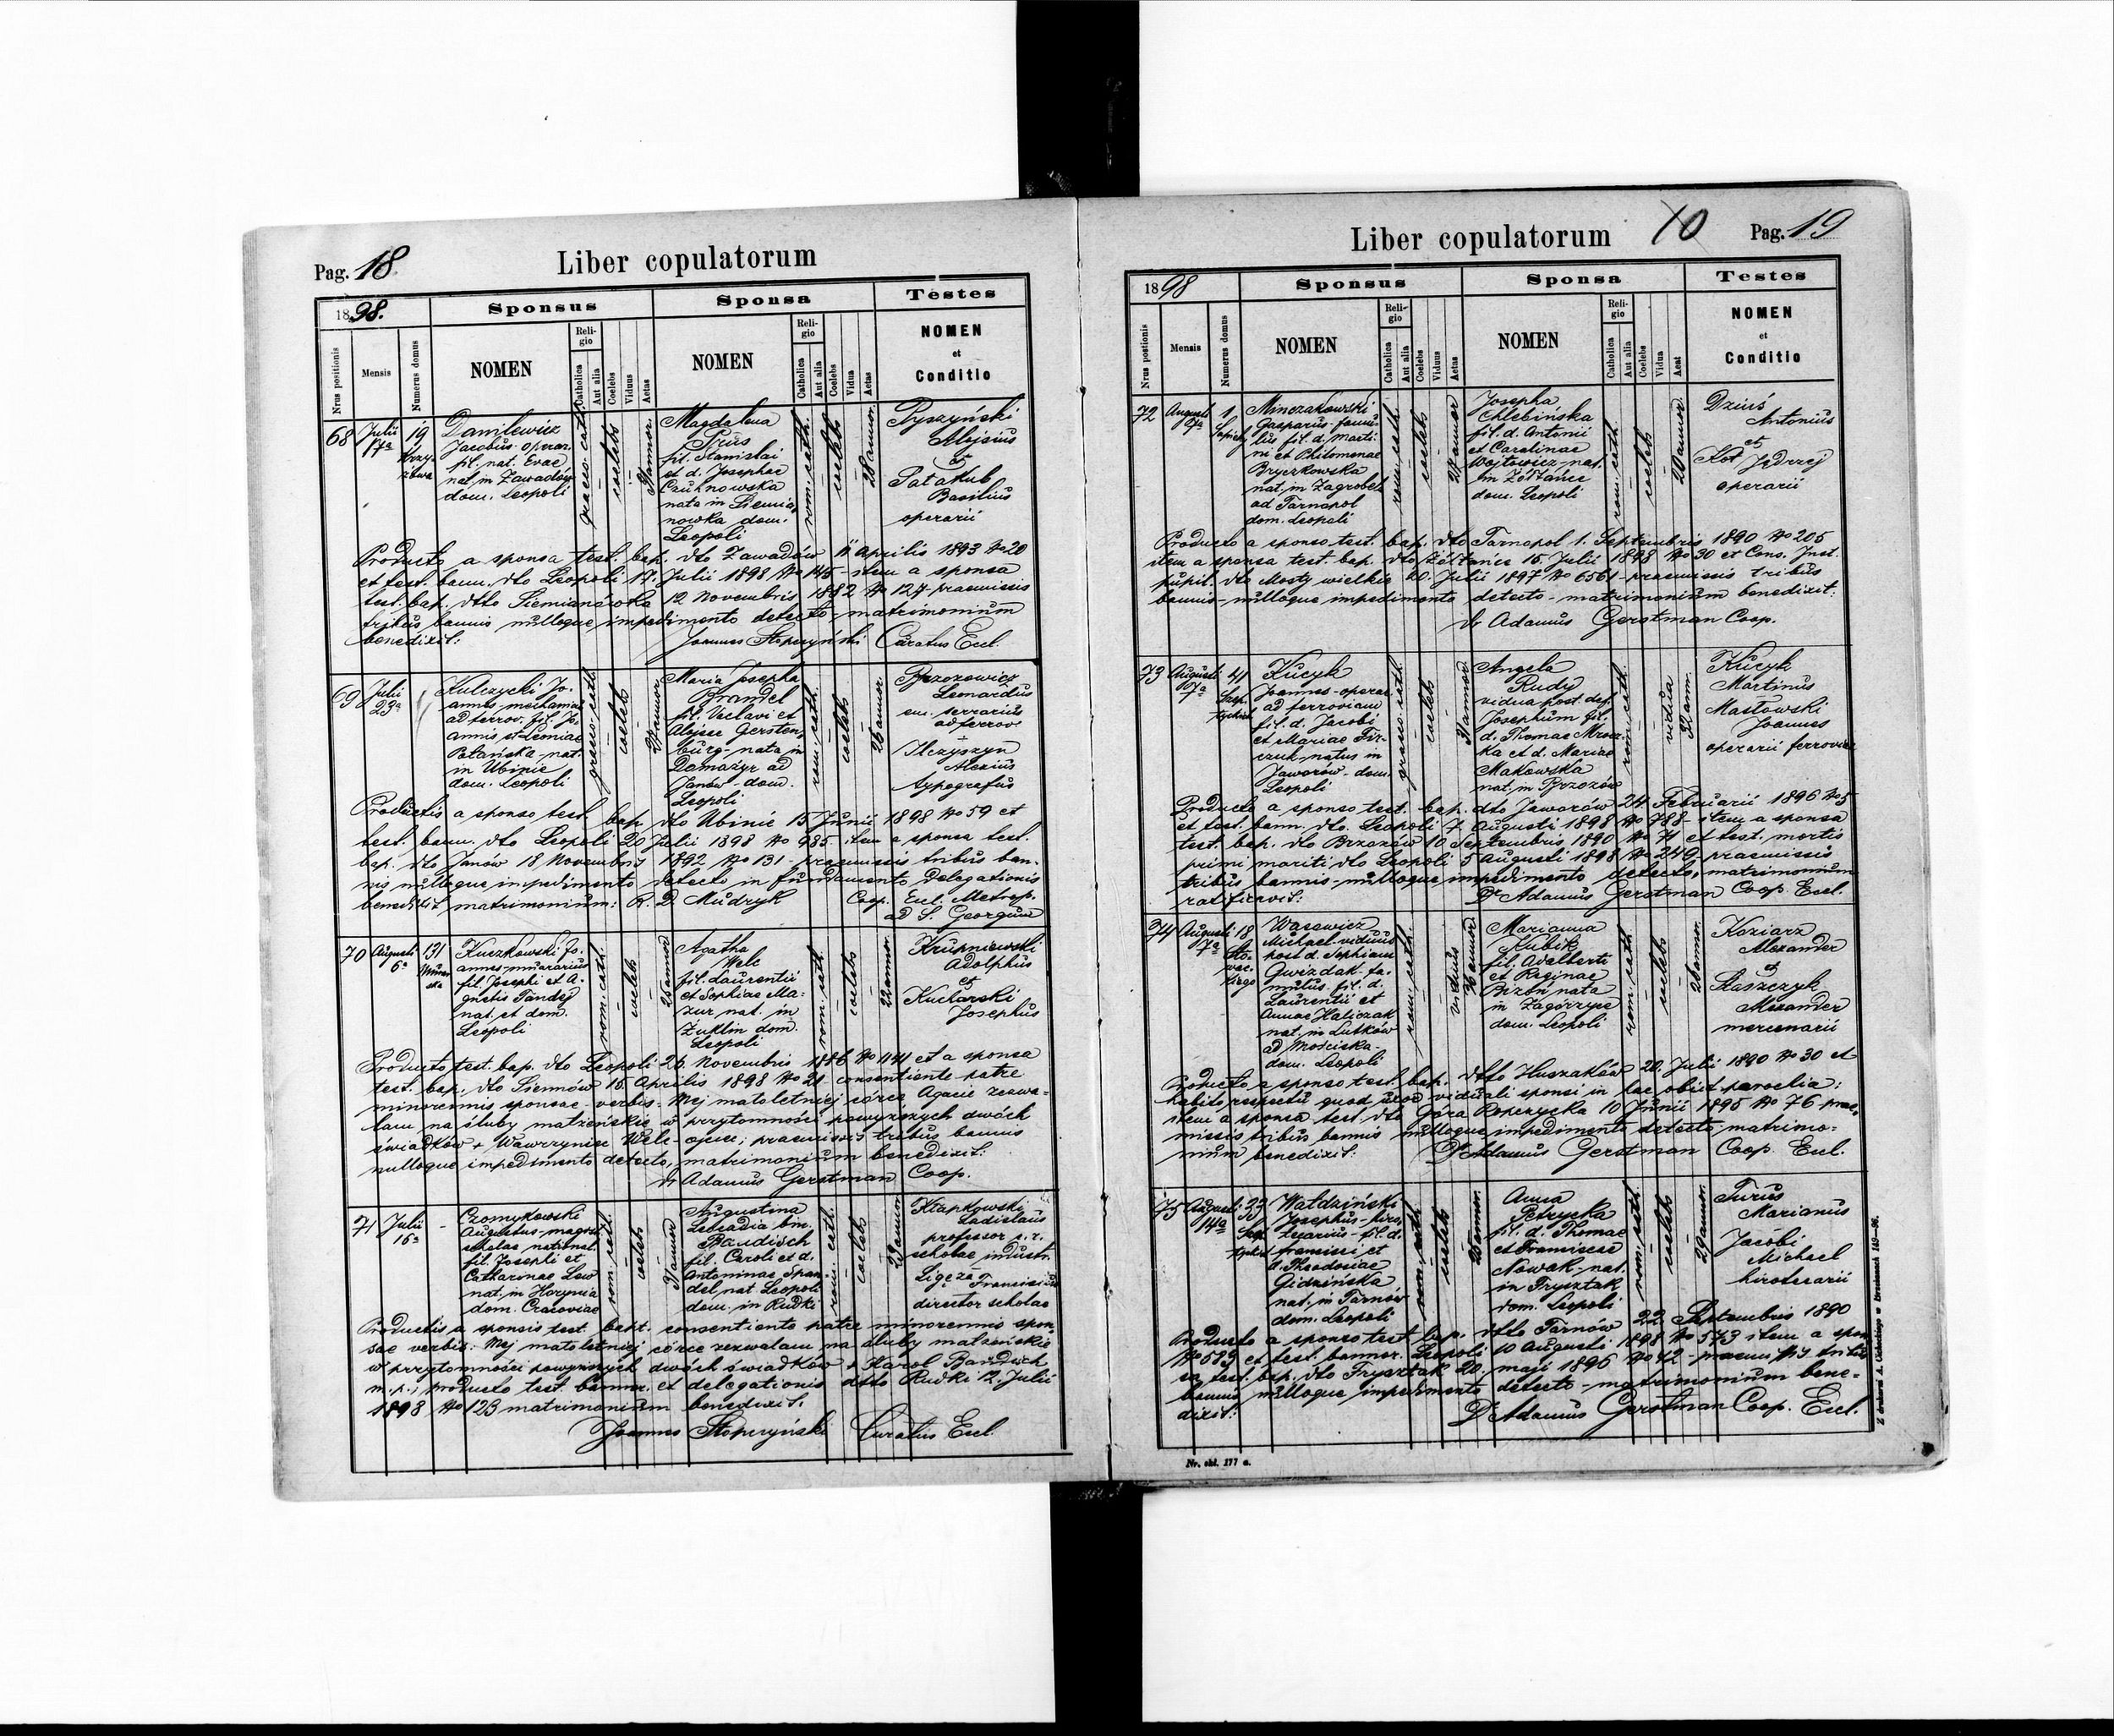 Pag. 18
Liber copulatorum
1898.
Sponsus
Sponsa
Testes
Nrus positionis
Mensis
Numerus domus
NOMEN
Religio
Catholica
Aut alia
Coelebs
Viduus
Aetas
NOMEN
Religio
Catholica
Aut alia
Coelebs
Vidua
Aetas
NOMEN
et
Conditio
68
Julii
17a
19
Danilewicz
Jacobus operar.
fil. nat. Evae
nat. in Zawadów
dom. Leopoli
graeco cath.
coelebs
Magdalena
Prus
fil. Stanislai
et d. Josephae
Czuhnowska
nata in Siemia-
nowka dom.
Leopoli
rom. cath.
coelebs
28 annor.
Pyszyński
Alojsius
et
Patakub
Basilius
operarii
Producto a sponso test. bap. dto Zawadów 11 Aprilis 1893 No 20
et test. bann. dto Leopoli 17. Julii 1898 No 145 - item a sponsa
test. bap. dtto Siemianówka 12 Novembris 1882 No 127 praemissis
tribus bannis nulloque impedimento detecto - matrimonium
benedixit:
Joannes Stopczyński Curatus Eccl.
69
Julii
23a
Kulczycki Jo-
annes mechanicus
ad ferrov. fil. Jo-
annis et Leoniae
Potańska - nat.
in Ubinie
dom. Leopoli
graeco-cath.
coelebs
Maria Josepha
Brandel
fil. Vaclavi et
Alojsae Gersten-
burg - nata in
Domażyr ad
Janów - dom.
Leopoli
rom. cath.
coelebs
26 annor.
Brzozowicz
Leonardus
em. serrarius
ad ferrov
Ilczyszyn
Alexius
typografus
Productis a sponso test. bap. dto Ubinie 15 Junii 1898 No 59 et
test. bann. dto Leopoli 20 Julii 1898 No 985 item a sponsa test.
bap. dto Janów 18 Novembris 1892 No 131 - praemissis tribus ban-
nis nulloque impedimento detecto in fundamento Delegationis
benedixit matrimonium: R. D. Mudryk Coop. Eccl. Metrop.
ad S. Georgium
70
Augusti
6a
131
Kuczkowski Jo-
annes - murarius
fil. Josephi et A-
gnetis Pandej
nat. et dom.
Leopoli
rom. cath.
coelebs
25 annor
Agatha
Welc
fil. Laurentii
et Sophiae Ma-
zur nat. in
Żuklin dom.
Leopoli
rom. cath.
coelebs
22 annor.
Krupniewski
Adolphus
et
Kucharski
Josephus
Producto test. bap. dto Leopoli 26. Novembris 1886 No 1141 et a sponsa
test. bap. dto Siennów 16 Aprilis 1898 No 21 consentiente patre
minorennis sponsae - verbis: Mej małoletniej córce Agacie zezwa-
lam na śluby małżeńskie w przytomności powyższych dwóch
świadków + Wawrzyniec Welc - ojciec; praemissis tribus bannis
nulloque impedimento detecto, matrimonium benedixit:
Dr Adamus Gerstman Coop.
71
Julii
16a
-
Czomykowski
Augustus - magist.
scholae national.
fil. Josephi et
Catharinae Lew
nat. in Horynia
dom. Cracoviae
rom. cath.
coelebs
31 annor
Augustina
Leocadia bin.
Baudisch
fil. Caroli et d.
Antoninae Span-
del nat. Leopoli
dom. in Rudki
rom. cath.
coelebs
23 annor
Kłapkowski
Ladislaus
professor c. r.
scholae industr.
Ligęza
Franciscus
director scholae
Productis a sponsis test. bapt. consentiente patre minorennis spon-
sae verbis: Mej małoletniej córce zezwalam na śluby małżeńskie
w przytomności powyższych dwóch świadków + Karol Baudisch
m. p.; producto test. bannor. et delegationis dtto Rudki 12. Julii
1898 No 123 matrimonium benedixit.
Joannes Stopczyński Curatus Eccl.
Liber copulatorum
10
Pag. 19
1898
Sponsus
Sponsa
Testes
Nrus positionis
Mensis
Numerus domus
NOMEN
Religio
Catholica
Aut alia
Coelebs
Viduus
Aetas
NOMEN
Religio
Catholica
Aut alia
Coelebs
Vidua
Aest
NOMEN
et
Conditio
72
Augusti
7a
1
Minczakowski
Gasparus - famu-
lus fil. d. Marti-
ni et Philomenae
Bryczkowska
nat. in Zagrobela
ad Tarnopol
dom. Leopoli
rom. cath.
coelebs
Josepha
Chlebińska
fil. d. Antonii
et Carolinae
Wojtowicz - nat.
in Żółtańce
dom. Leopoli
rom. cath.
coelebs
Dziuś
Antonius
et
Kot Jędrzej
operarii
Producto a sponso test. bap. dto Tarnopol 1. Septembris 1890 No 205
item a sponsa test. bap. dto Żółtańce 15. Julii 1898 No 30 et Cons. Inst.
pupil. dto Mosty wielkie 20. Julii 1897 No 6561 - praemissis tribus
bannis - nulloque impedimento detecto - matrimonium benedixit:
Dr Adamus Gerstman Coop.
73
Augusti
7a
41
Kucyk
Joannes - operar.
ad ferroviam
fil. d. Jacobi
et Mariae Fir-
czuk natus in
Jaworów - dom.
Leopoli
graeco. cath.
coelebs
31 annor
Angela
Rudy
vidua post def.
Josephum fil.
d. Thomae Mrocz-
ka et d. Mariae
Makowska
nat. in Brzozów
rom. cath.
vidua
32 ann.
Kucyk
Martinus
Masłowski
Joannes
operarii ferroviae
Producto a sponso test. bap. dto Jaworów 24. Februarii 1896 No 5
et test. bann. dto. Leopoli 7. Augusti 1898 No 788 - item a sponsa
test. bap. dto Brzozów 10 Septembris 1890 No 71 et test. mortis
primi mariti dto Leopoli 5 Augusti 1898 No 249 - praemissis
tribus bannis - nulloque impedimento detecto, matrimonium
ratificavit:
Dr Adamus Gerstman Coop. Eccl.
74
Augusti
7a
18
Wasewicz
Michael viduus
post d. Sophiam
Gwizdak - fa-
mulus. fil. d.
Laurentii et
Annae Haliczak
nat. in Lutków
ad Mościska -
dom. Leopoli
rom. cath.
viduus
Marianna
Kubik
fil. Adalberti
et Reginae
Bizoń nata
in Zagórzyce
dom. Leopoli
rom. cath
coelebs
Koziarz
Alexander
et
Staszczyk
Alexander
mercenarii
Producto a sponso test. bap. dtto Huszaków 22. Julii 1890 No 30 et
habito respectu quod uxor viduali sponsi in hac obiit parochia;
item a sponsa test. dto Góra Ropczycka 10 Junii 1895 No 76 prae-
missis tribus bannis nulloque impedimento detecto, matrimo-
nium benedixit:
Dr Adamus Gerstman Coop. Eccl.
75
Augusti
14a
Wałdziński
Josephus - 
fil. d.
Francisci et
d. Theodosiae
Gidzińska
nat. in Tarnów
dom. Leopoli
rom. cath
coelebs
Anna
Petrycka
fil. d. Thomae
et Franciscae
Nowak - nat.
in Frysztak
dom. Leopoli
rom. cath
coelebs
Turus
Marianus
Jacobi
Michael
Producto a sponso test. bap. dtto Tarnów 22 Septembris 1890
No 589 et test. bannor. Leopoli 10 Augusti 1898 No 573 item a spon-
sa test. bap. dto Frysztak 20. maji 1896 No 42 - praemissis tribus
bannis nulloque impedimento detecto - matrimonium bene-
dixit:
Dr Adamus Gerstman Coop. Eccl.
Nr. skł. 177 a.